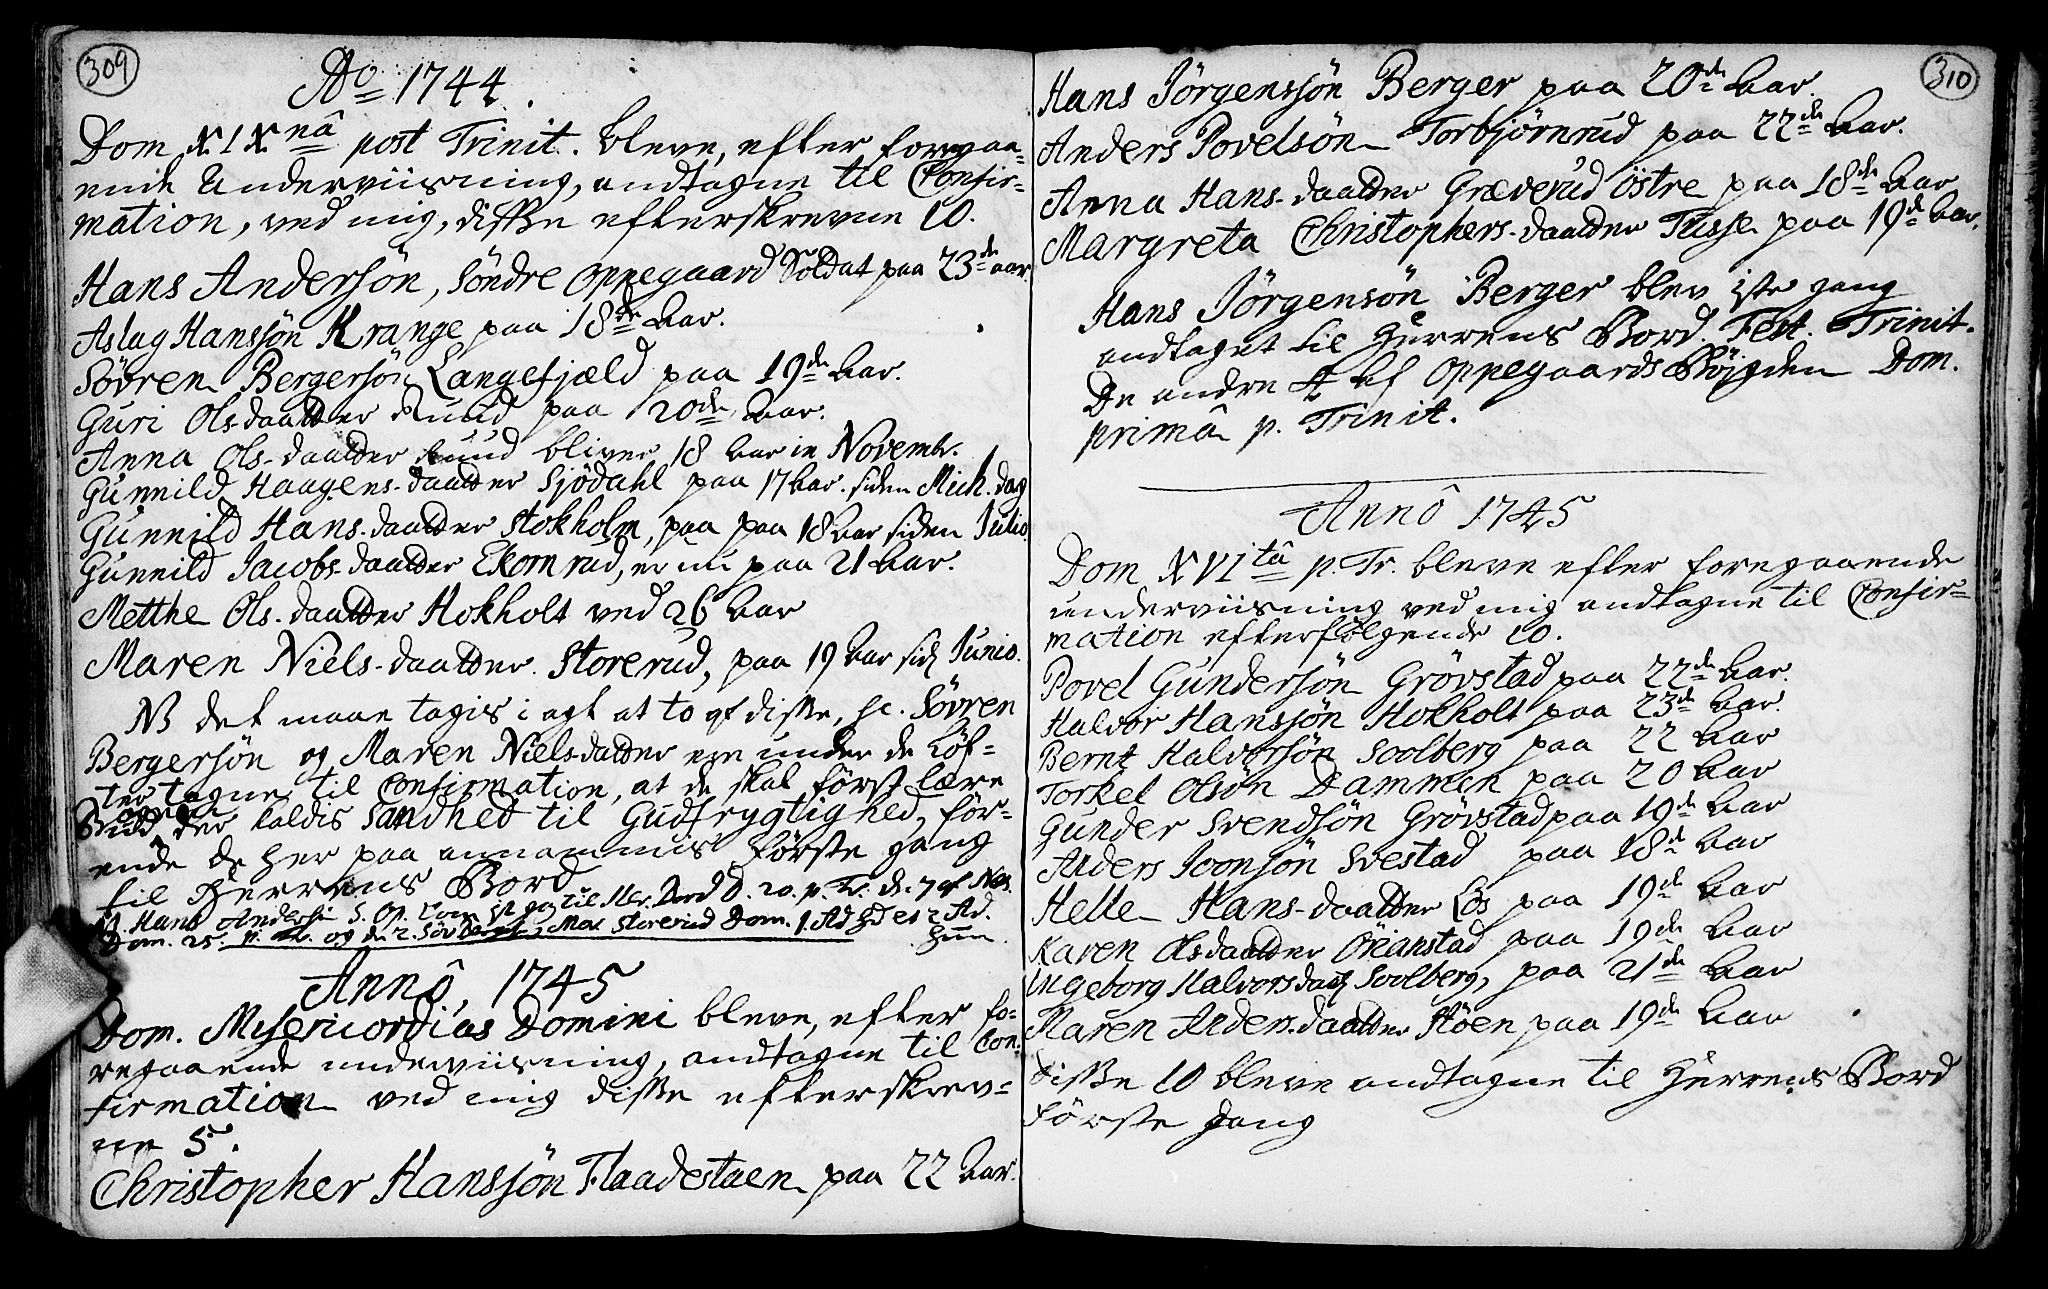 309
Ao 1744.
Dom XIXnâ post Trinit. bleve, efter foregaa-
ende Underviisning, andtagne til Confir-
mation, ved mig, disse efterskrevne 10.
Hans Andersøn, Søndre Oppegaard Soldat paa 23de aar.
Aslag Hanssøn Krange paa 18de Aar.
Søvren Bergersøn Langefjæld paa 19de Aar.
Guri Olsdaatter Ruud paa 20de Aar.
Anna Ols-daatter Ruud bliver 18 Aar in Novembr.
Gunnild Haagens-daatter Sjødahl paa 17 Aar siden Mich. dag
Gunnild Hans-daatter Stokholm, paa paa 18 Aar siden Julio.
Gunnild Jacobs-daatter Ekornrud, er nu paa 21 Aar.
Metthe Ols-daatter Hokholt ved 26 Aar
Maren Niels-daatter Storerud, paa 19 Aar sid Junio.
NB det maae tagis i agt at to af disse, sc. Søvren
Bergersøn og Maren Nielsdatter ere under de Løf-
ter tagne til Confirmation, at de skal først lære
der kaldis Sandhed til Gudfrygtighed, før-
ende de her paa annammis første gang
til Herrens Bord
Hans Andersøn S. Op. kom 1st gg til Her. Bord D. 20. p. Tr. d. 7 af Nov.
Dom. 25. p. Tr. og de 2. Søv Mar. Storerud Dom. 1. Ad
Annô 1745
Dom. Misericordias Domini bleve, efter fo-
regaaende underviisning, andtagne til Con-
firmation ved mig disse efterskrev-
ne 5.
Christopher Hanssøn Flaadestaen paa 22 Aar.
310
Hans Jørgenssøn Berger paa 20de Aar.
Anders Povelsøn Torbjørnrud paa 22de Aar.
Anna Hans-daatter Græverud østre paa 18de Aar
Margreta Christophers-daatter Tusse paa 19de Aar.
Hans Jørgensøn Berger blev 1ste gang
andtaget til Herrens Bord Fest. Trinit.
De andre 4 af Oppegaards Bøjgden Dom.
primâ p. Trinit.
Annô 1745
Dom XVItâ p. Tr. bleve efter foregaaende
underviisning ved mig andtagne til Confir-
mation efterfølgende 10.
Povel Gundersøn Grøvstad paa 22de Aar.
Halvor Hanssøn Hokholt paa 23de Aar.
Bernt Halvorsøn Soolberg paa 22 Aar
Torkel Olsøn Dammen paa 20 Aar
Gunder Svendsøn Grøvstad paa 19de Aar
Anders Joonsøn Svestad paa 18de Aar
Helle Hans-daatter Løs paa 19de Aar
Karen Olsdaatter paa 19de Aar
Ingeborg Halvorsdaat Soolberg, paa 21de Aar
Maren Anders-daatter Støen paa 19de Aar
Disse 10 bleve andtagne til Herrens Bord
første gang